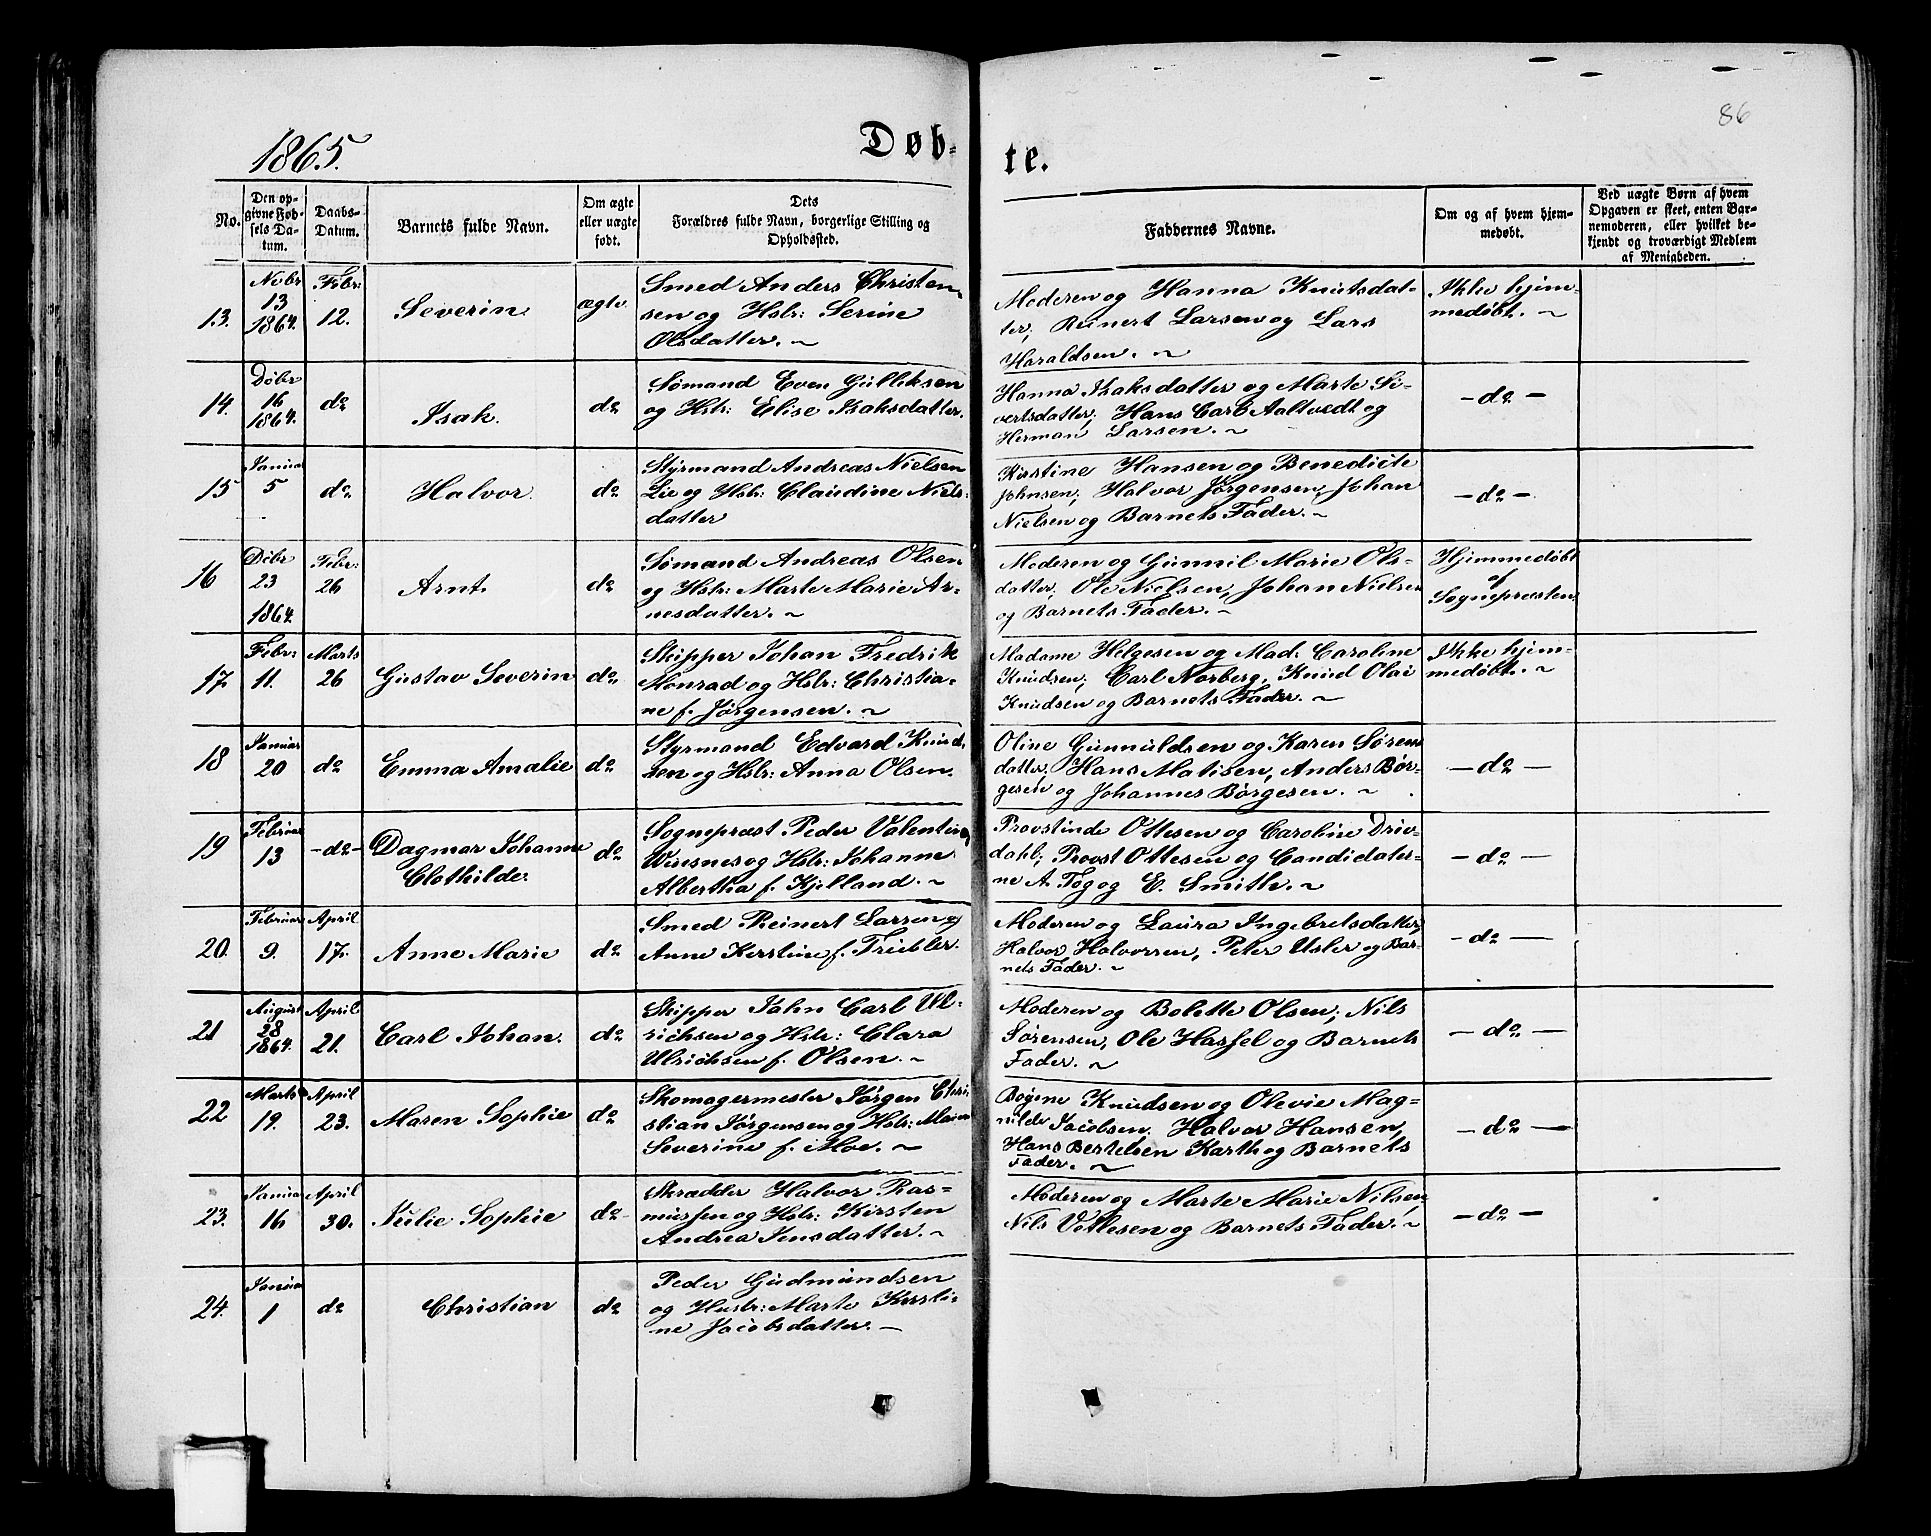 86
1865.
Døb-
te.
No.
Den op-
givne Fød-
sels Da-
tum.
Daabs-
Datum.
Barnets fulde Navn.
Om ægte
eller uægte
født.
Dets
Forældres fulde Navn, borgerlige Stilling og
Opholdssted.
Faddernes Navne.
Om og af hvem hjem-
medøbt.
Ved uægte Børn af hvem
Opgaven er skeet, enten Bar-
nemoderen, eller hvilket be-
kjendt og troværdigt Medlem
af Menigheden.
13.
Nvbr
13
1864.
Febr:
12.
Severin
ægte
Smed Anders Christen-
sen og Hstr: Serine
Olsdatter. ~
Moderen og Hanna Knutsdat-
ter, Reinert Larsen og Lars
Haraldsen. ~
Ikke hjem-
medøbt. ~
14.
Dcbr
16
1864.
do
Isak.
do
Sømand Even Gulliksen
og Hstr: Elise Isaksdatter.
Hanna Isaksdatter og Marte Si-
vertsdatter, Hans Carl Aaltvedt og
Herman Larsen. ~
- do -
15
Januar
5
do
Halvor.
do
Styrmand Andreas Nielsen
Lie og Hstr: Claudine Niels-
datter
Kirstine Hansen og Benedicte
Johnsen, Halvor Jørgensen, Johan
Nielsen og Barnets Fader. ~
- do -
16
Dcbr
23
1864.
Febr:
26
Arnt.
do
Sømand Andreas Olsen
og Hstr: Marte Marie Ar-
nesdatter. ~
Moderen og Gunnil Marie Ols-
datter, Ole Nielsen, Johan Nielsen
og Barnets Fader. ~
Hjemmedøbt
af
Sognepræsten.
17
Febr:
11.
Marts
26
Gustav Severin
do
Skipper Johan Fredrik
Monrad og Hstr: Christia-
ne f. Jørgensen. ~
Madame Helgesen og Mad. Caroline
Knudsen, Carl Norberg, Knud Olai
Knudsen og Barnets Fader. ~
Ikke hjem-
medøbt. ~
18
Januar
20
do
Emma Amalie
do
Styrmand Edvard Knud-
sen og Hstr: Anna Olsen.
Oline Gunnuldsen og Karen Sørens
datter, Hans Matisen, Anders Bør-
gesen og Johannes Børgesen. ~
- do -
19
Februar
13
- do -
Dagmar Johanne
Clothilde.
do
Sognepræst Peder Valentin
Wiesnes og Hstr: Johanne
Albertha f. Kjelland. ~
Provstinde Ottesen og Caroline Driv-
dahl, Provst Ottesen og Candidater-
ne A. Tog og E. Smith. ~
- do -
20.
Februar
9.
April
17.
Anne Marie
do
Smed Reinert Larsen og
Anne Kirstine f. Triebler.
Moderen og Laura Ingebretsdatter,
Halvor Halvorsen, Peter Usler og Bar-
nets Fader. ~
- do -
21
August
28
1864.
April
21.
Carl Johan.
do
Skipper John Carl Ul-
richsen og Hstr: Clara
Ulrichsen f. Olsen. ~
Moderen og Bolette Olsen, Nils
Sørensen, Ole Hassel og Barnets
Fader. ~
- do -
22
Marts
19.
April
23.
Maren Sophie
do
Skomagermester Jørgen Chri-
stian Jørgensen og Hstr: Maren
Severine f. Moe. ~
Knudsen og Olevie Mag-
nilde Jacobsen, Halvor Hansen,
Hans Bertelsen Karth og Barnets
Fader. ~
- do -
23.
Januar
16
April
30.
Julie Sophie
do
Skrædder Halvor Ras-
mussen og Hstr: Kirsten
Andrea Jensdatter. ~
Moderen og Marte Marie Nilsen,
Nils Vetlesen og Barnets Fader. ~
- do -
24.
Januar
1
do
Christian
do
Peder Gudmundsen
og Hustr: Marte Kirsti-
ne Jacobsdatter. -